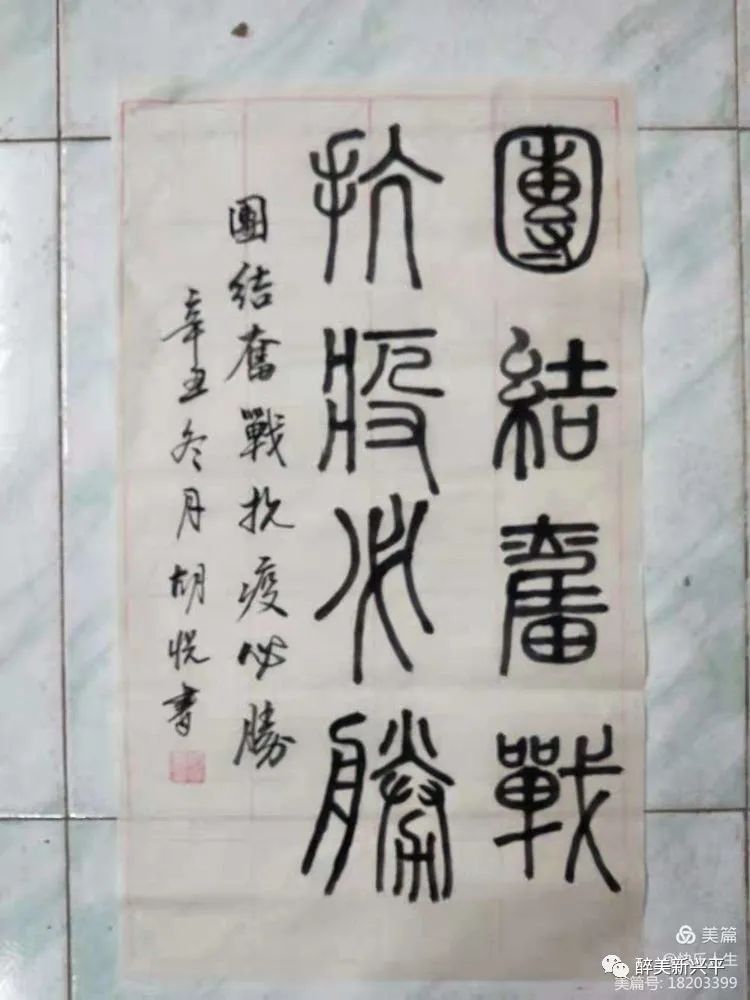 團結奮戰
抗疫必勝
團結奮戰抗疫必勝
辛丑冬月胡悅書
美篇
醉美新兴平
美篇号: 18203399